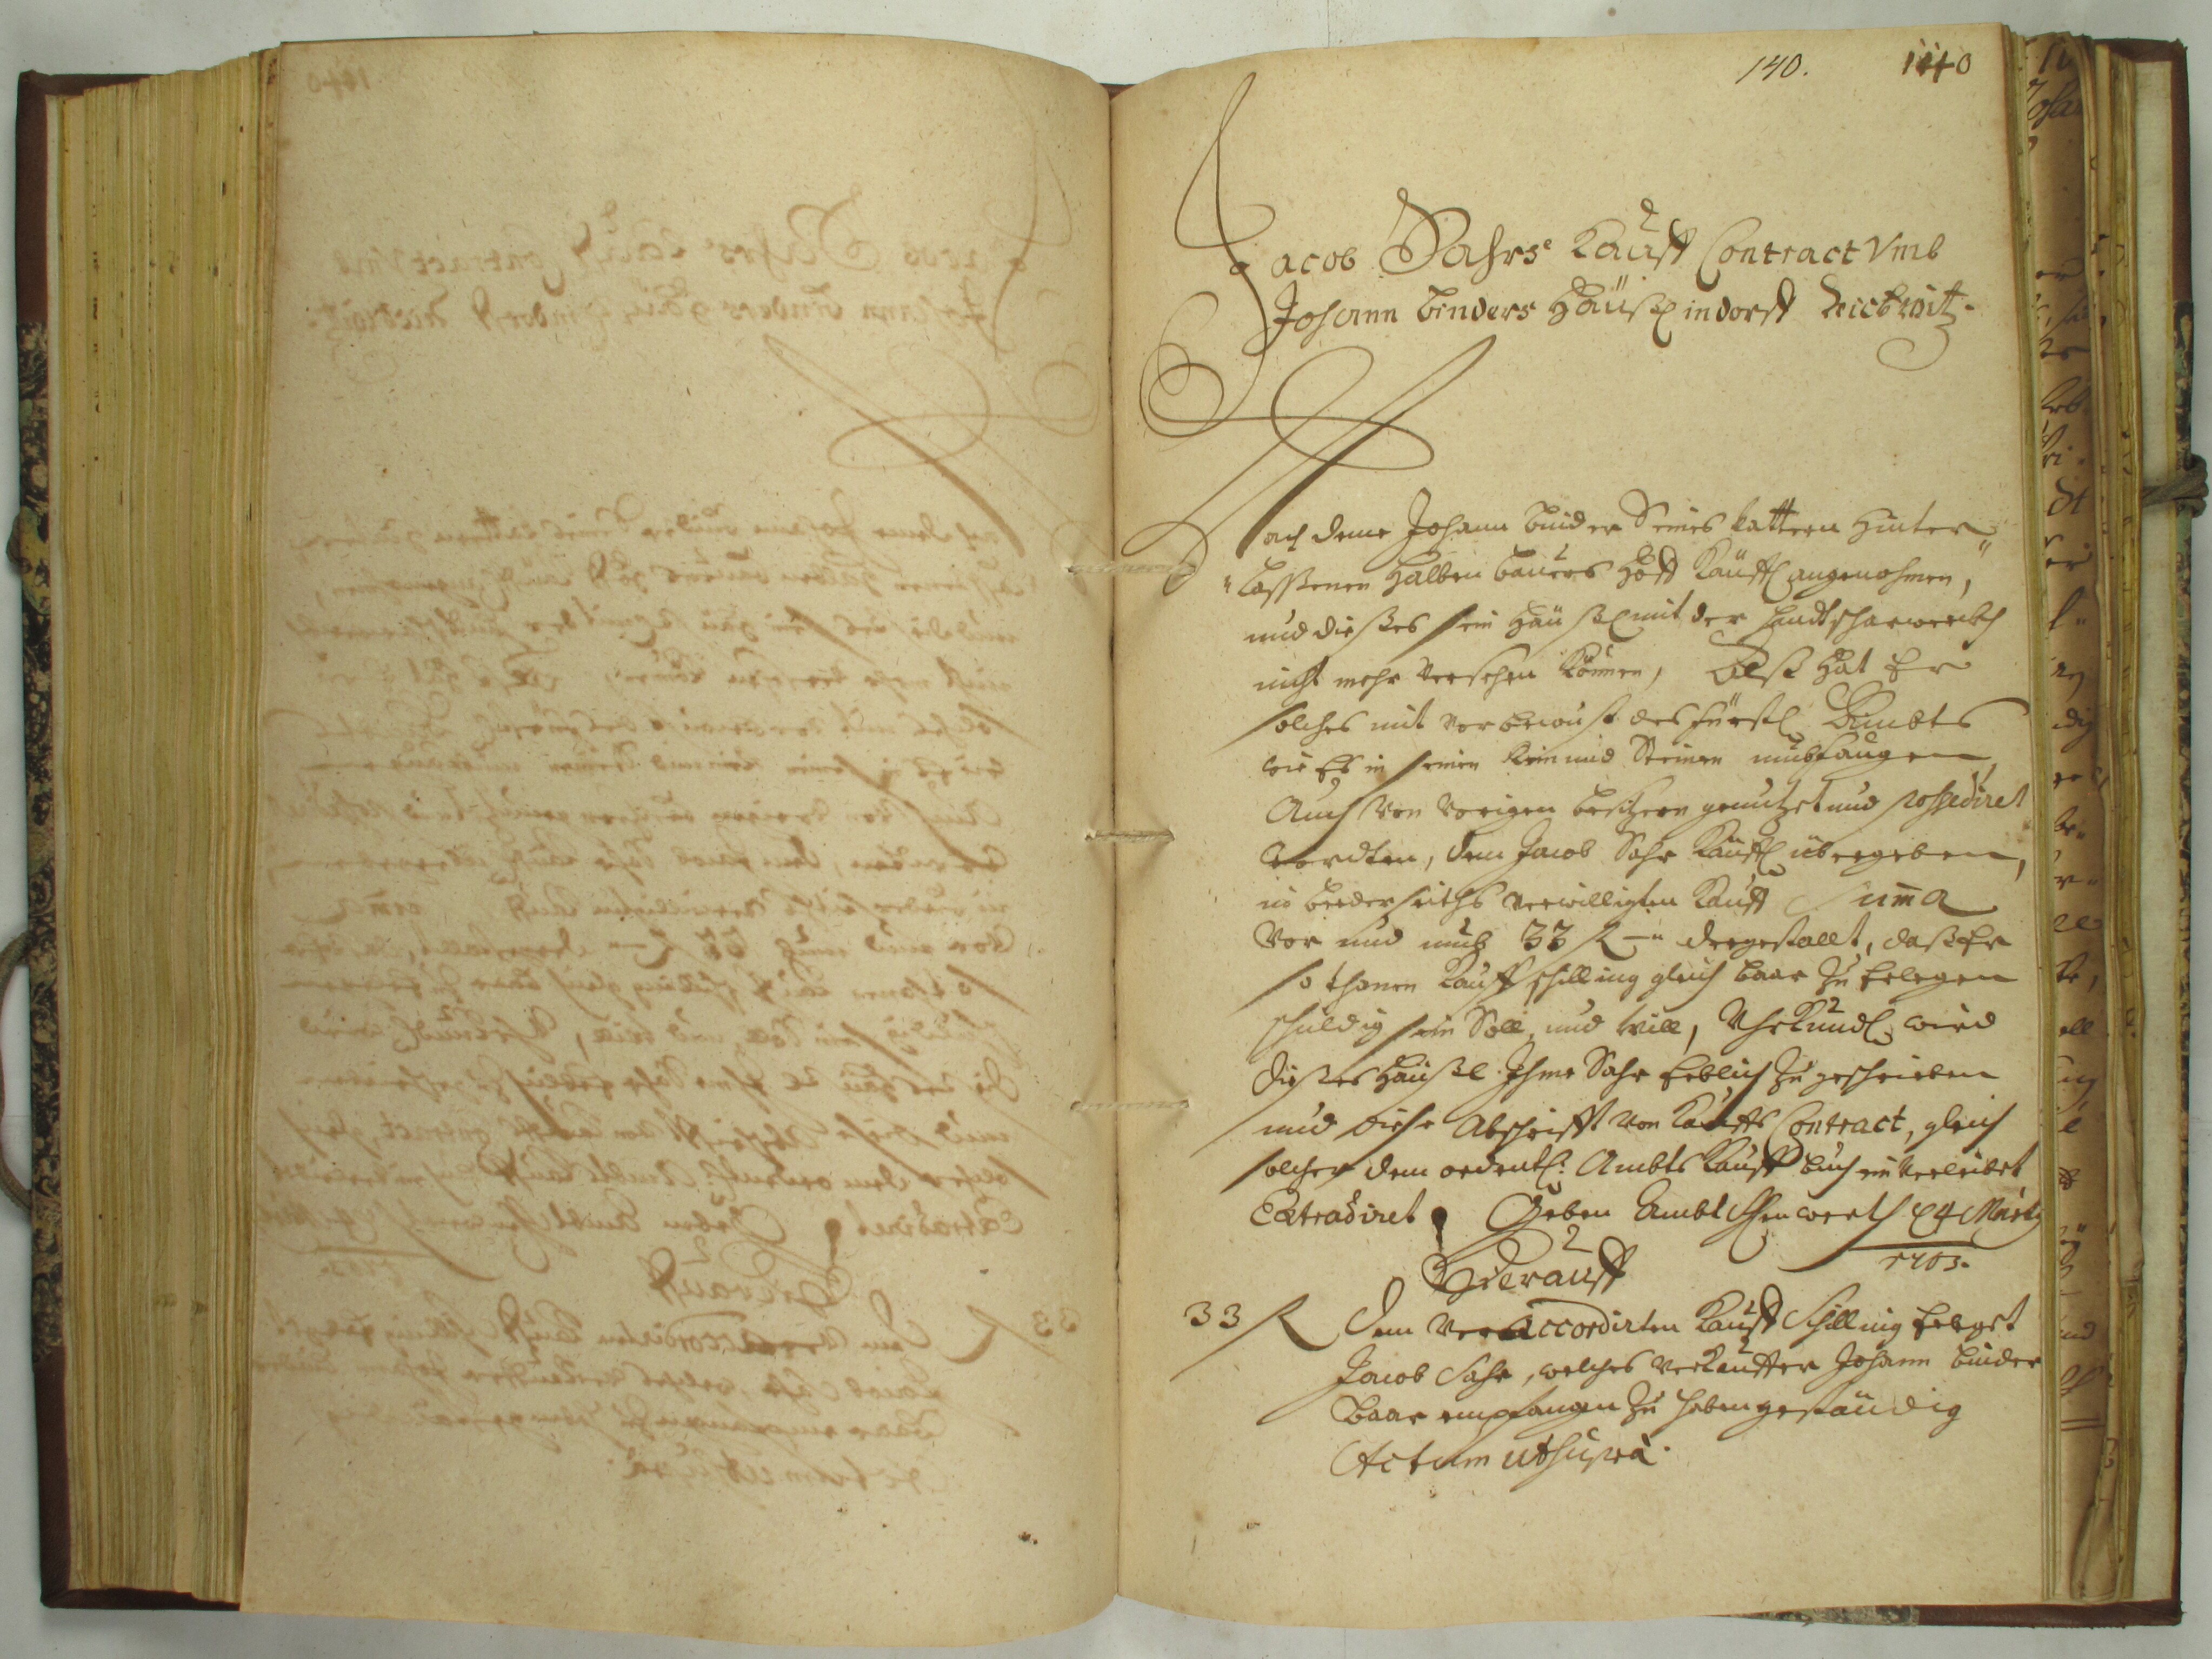 140. 1140
Jacob Sahrs Kauff Contract Vmb
Johann Binders Häußl in dorff
Nach deme Johann Binder Seines Vattern Hinter„
„Lassenen Halben Bauers Hoff Käuffl angenohmen,
und dießes sein Häußl mit der handtscharwerckh
nicht mehr Versehen können, Alß Hat Er
solches mit Vorbewust des Fürstl Ambts
wie Es in seinen Rein und Steinen umbfangen,
Auch Von Vorigen besitzern genutzet und possediret
wordten, dem Jacob Sahr Käuffl übergeben,
in beederseiths Verwilligten Kauff Suma
Vor und umb 33 f – „ dergestallt, daß Er
sothanen Kauffschilling gleich baar zu Erlegen
schuldig sein Soll, und Will, Uhrkundl wird
dießes Haüßl Ihme Sahr Erblich zu geschrieben
und diese Abschrifft Von Kauffs Contract, gleich
solcher dem ordentl: Ambts Kauff buch ein Verleibet
Extradiret Geben Ambt 24 Märtz
1703.
Hierauff
33 f dem Veraccordirten Kauff Schilling Erleget
Jacob Sahr, welches Verkäuffer Johann Binder
baar empfangen zu haben geständig
Actum ut supra.